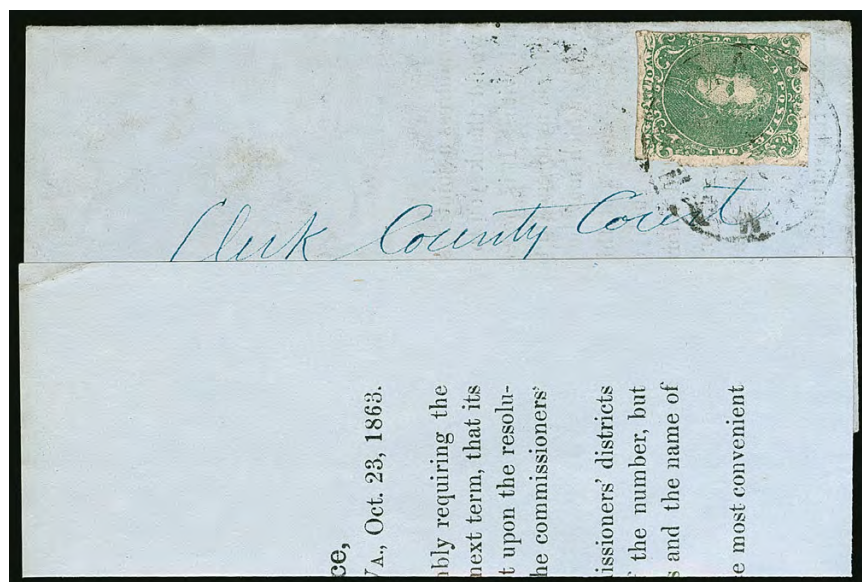 TWO CENTS
Clerk County Court
ce,
VA., Oct. 23, 1863.
bly requiring the
next term, that its
t upon the resolu-
he commissioners'
issioners' districts
f the number, but
s and the name of
e most convenient